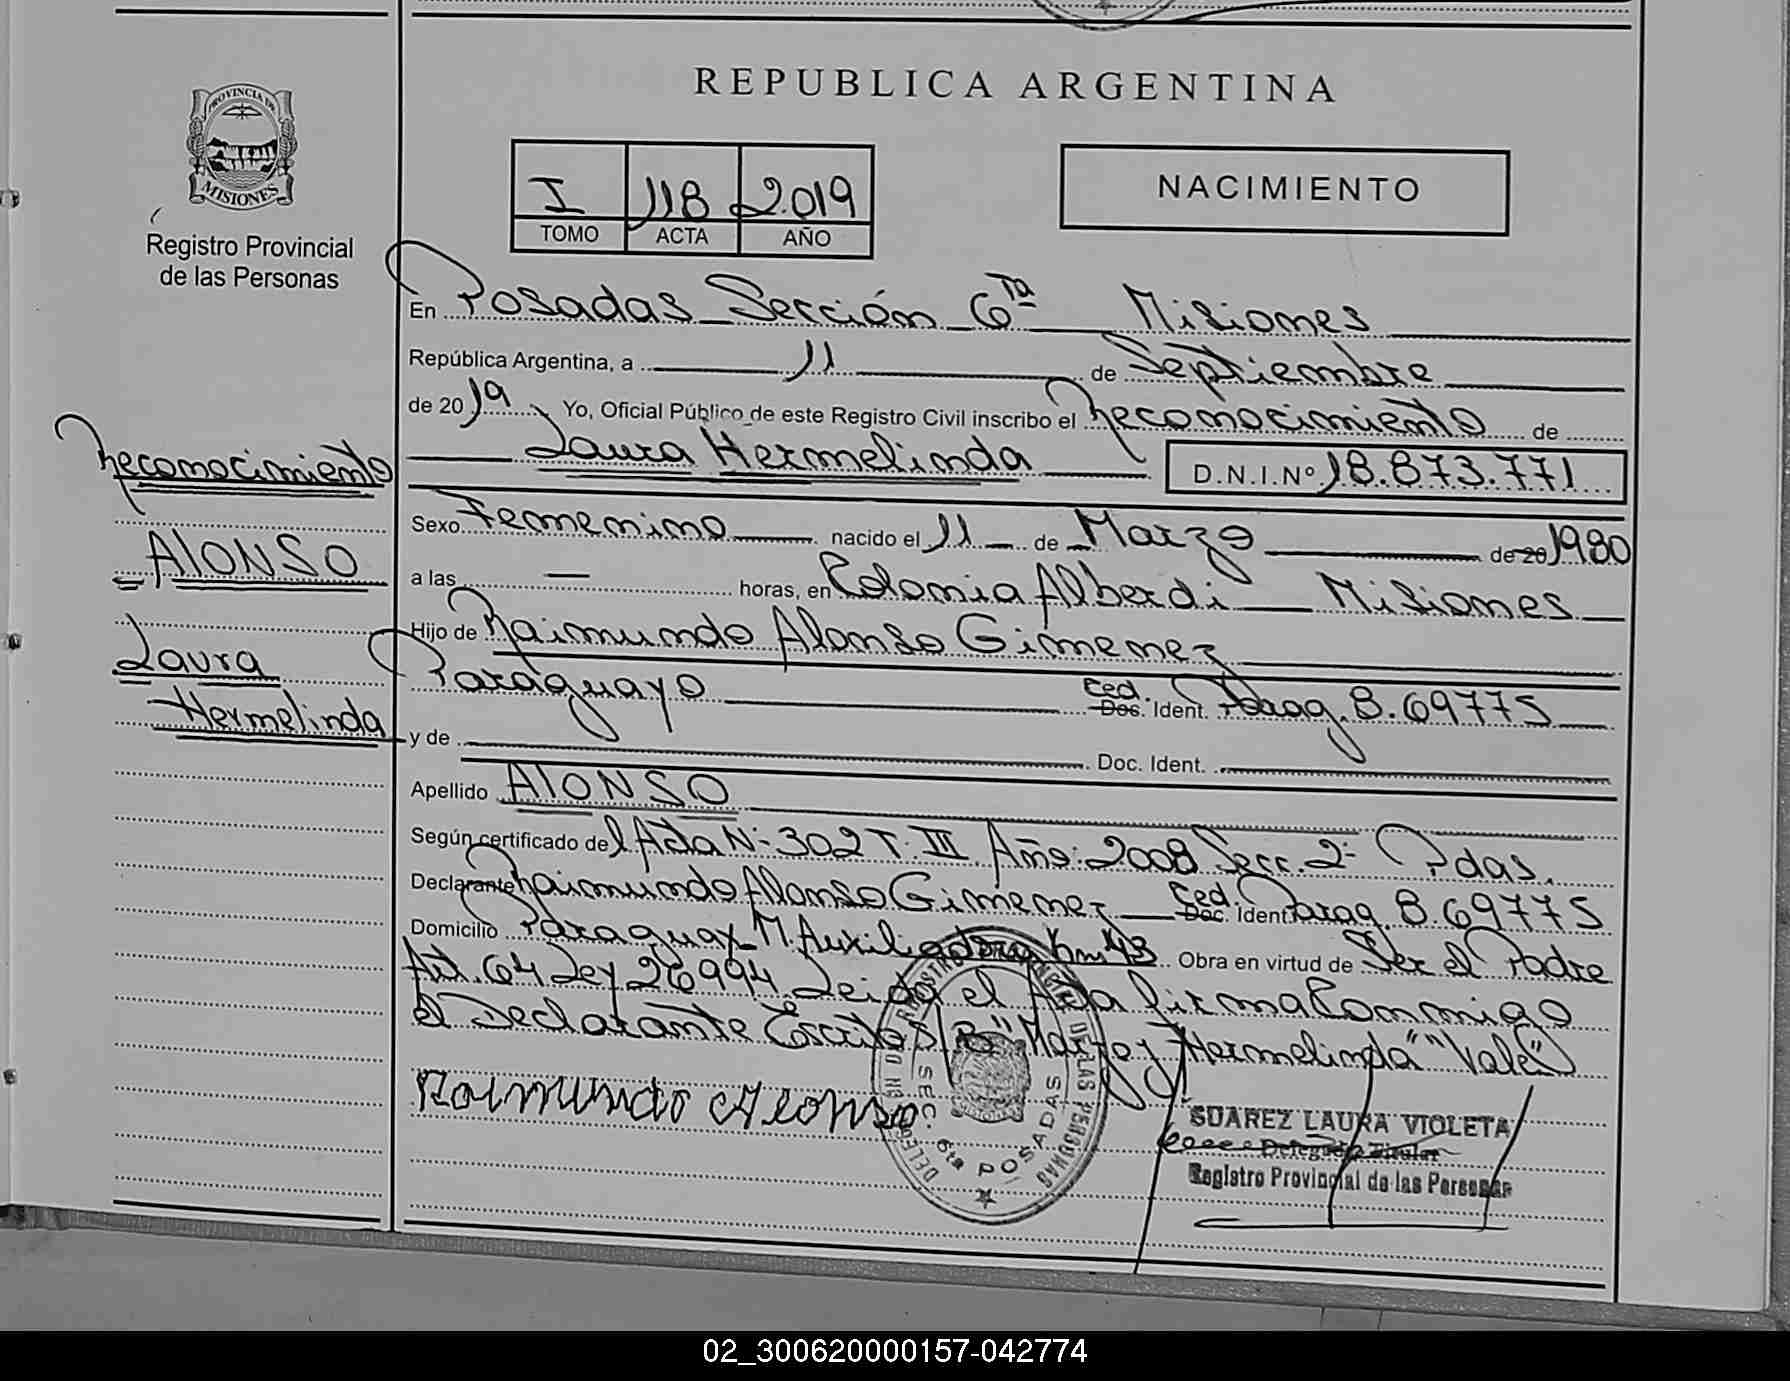 REPUBLICA ARGENTINA
PROVINCIA DE
MISIONES
Registro Provincial
de las Personas
I 118 2.019
TOMO ACTA AÑO
NACIMIENTO
En Posadas Sección 6ta Misiones
República Argentina, a 11 de Septiembre
de 2019 Yo, Oficial Público de este Registro Civil inscribo el Reconocimiento de
Laura Hermelinda D.N.I.Nº 18.873.771
Sexo Femenino nacido el 11 de Marzo de 20 1980
a las — horas, en Colonia Alberdi Misiones
Hijo de Raimundo Alonso Gimenez
Paraguayo Ced. Doc. Ident. Parag. 8.69775
y de Doc. Ident.
Apellido ALONSO
Según certificado del Acta N- 302 T. III Año: 2008 Secc. 2- Pdas.
Declarante Raimundo Alonso Gimenez Ced. Doc. Ident. Parag. 8.69775
Domicilio Paraguay M. Auxiliadora km 43 Obra en virtud de Ser el Padre
Art. 64 Ley 26994 Leida el Acta firma Conmigo
el Declarante Escrito S/R "Marzo y Hermelinda" "Vale"
Raimundo Alonso
SUAREZ LAURA VIOLETA
Delegada Titular
Registro Provincial de las Personas
SEC. 6ta POSADAS
Reconocimiento
ALONSO
Laura
Hermelinda
02_300620000157-042774